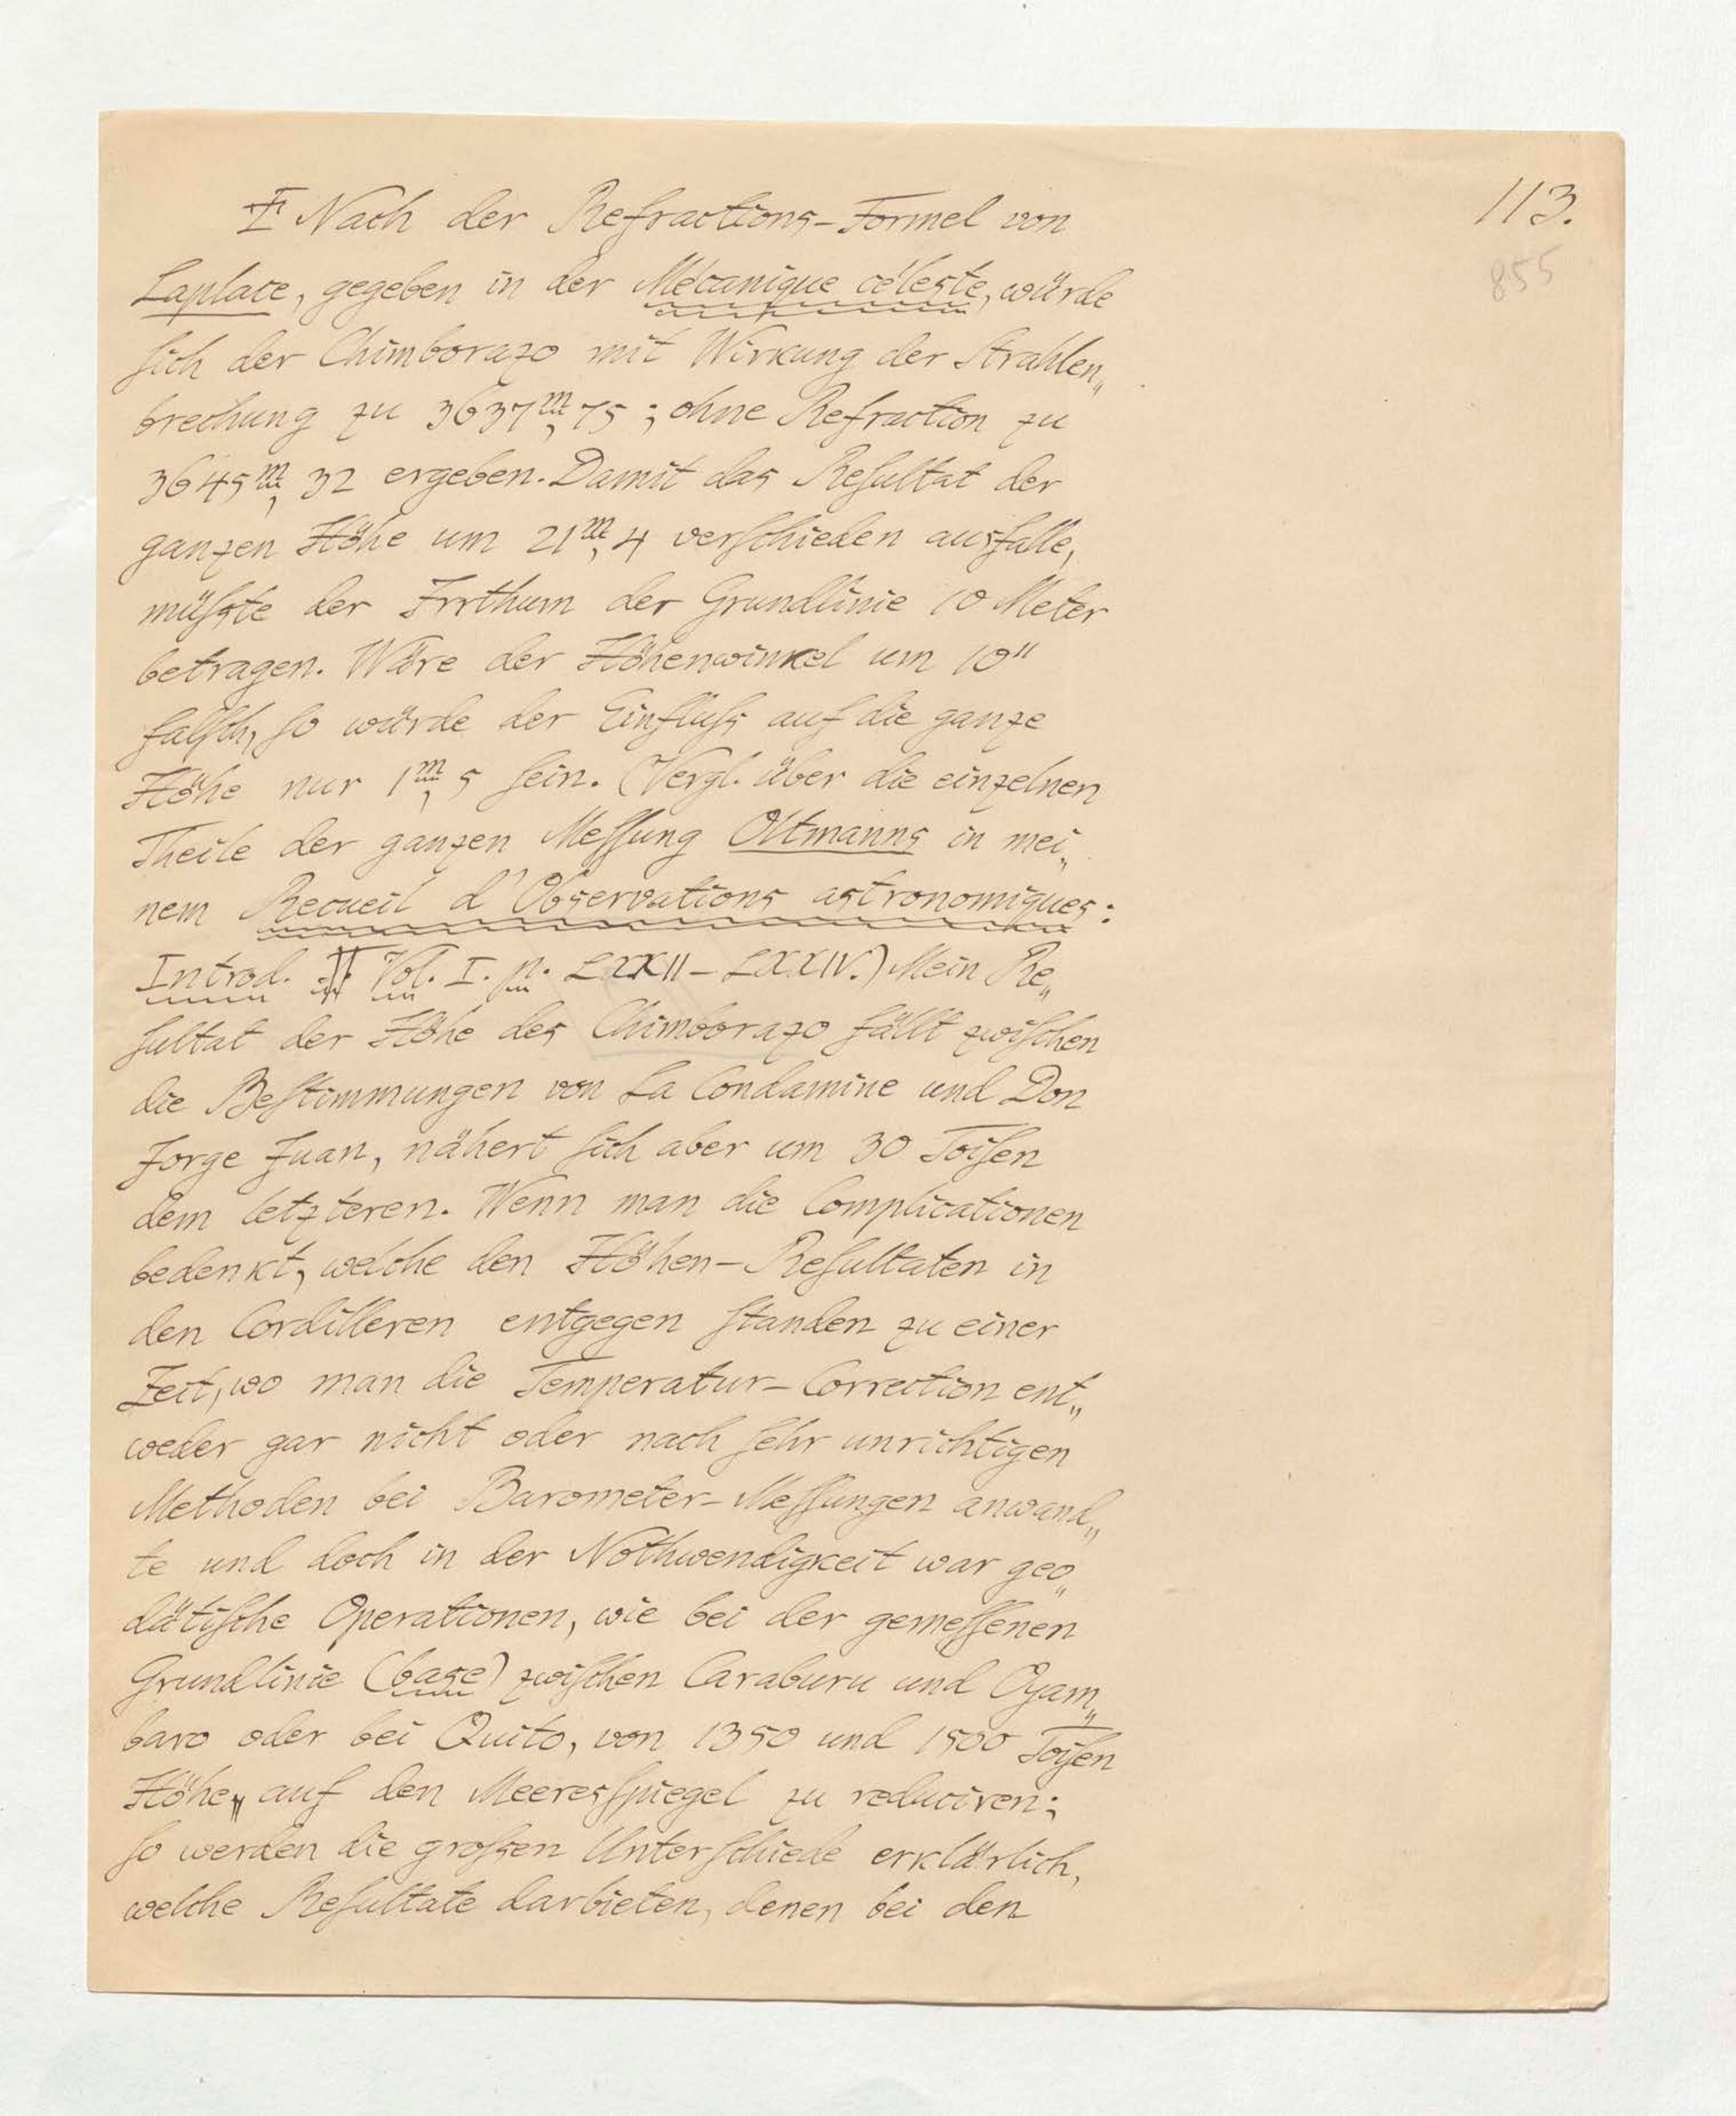 113.
855
Nach der Refractions-Formel von
Laplace, gegeben in der Mécanique céleste, würde
ſich der Chimborazo mit Wirkung der Strahlen„
brechung zu 3637m,75; ohne Refraction zu
3645m,32 ergeben. Damit das Reſultat der
ganzen Höhe um 21m,4 verſchieden ausfalle,
müſste der Irrthum der Grundlinie 10 Meter
betragen. Wäre der Höhenwinkel um 10"
falſch, ſo würde der Einfluſs auf die ganze
Höhe nur 1m,5 ſein. (Vergl. über die einzelnen
Theile der ganzen Meſſung Oltmanns in mei„
nem Recueil d'Observations astronomiques:
Introd. Vol. I. p. LXXII–LXXIV.) Mein Re„
ſultat der Höhe des Chimborazo fällt zwiſchen
die Beſtimmungen von La Condamine und Don
Jorge Juan, nähert ſich aber um 30 Toiſen
dem letzteren. Wenn man die Complicationen
bedenkt, welche den Höhen-Reſultaten in
den Cordilleren entgegen ſtanden zu einer
Zeit, wo man die Temperatur-Correction ent„
weder gar nicht oder nach ſehr unrichtigen
Methoden bei Barometer-Meſſungen anwand„
te und doch in der Nothwendigkeit war geo„
dätiſche Operationen, wie bei der gemeſſenen
Grundlinie (base) zwiſchen Caraburu und Oyam„
baro oder bei Quito, von 1350 und 1500 Toiſen
Höhe, auf den Meeresſpiegel zu reduciren;
ſo werden die groſsen Unterſchiede erklärlich,
welche Reſultate darbieten, denen bei den